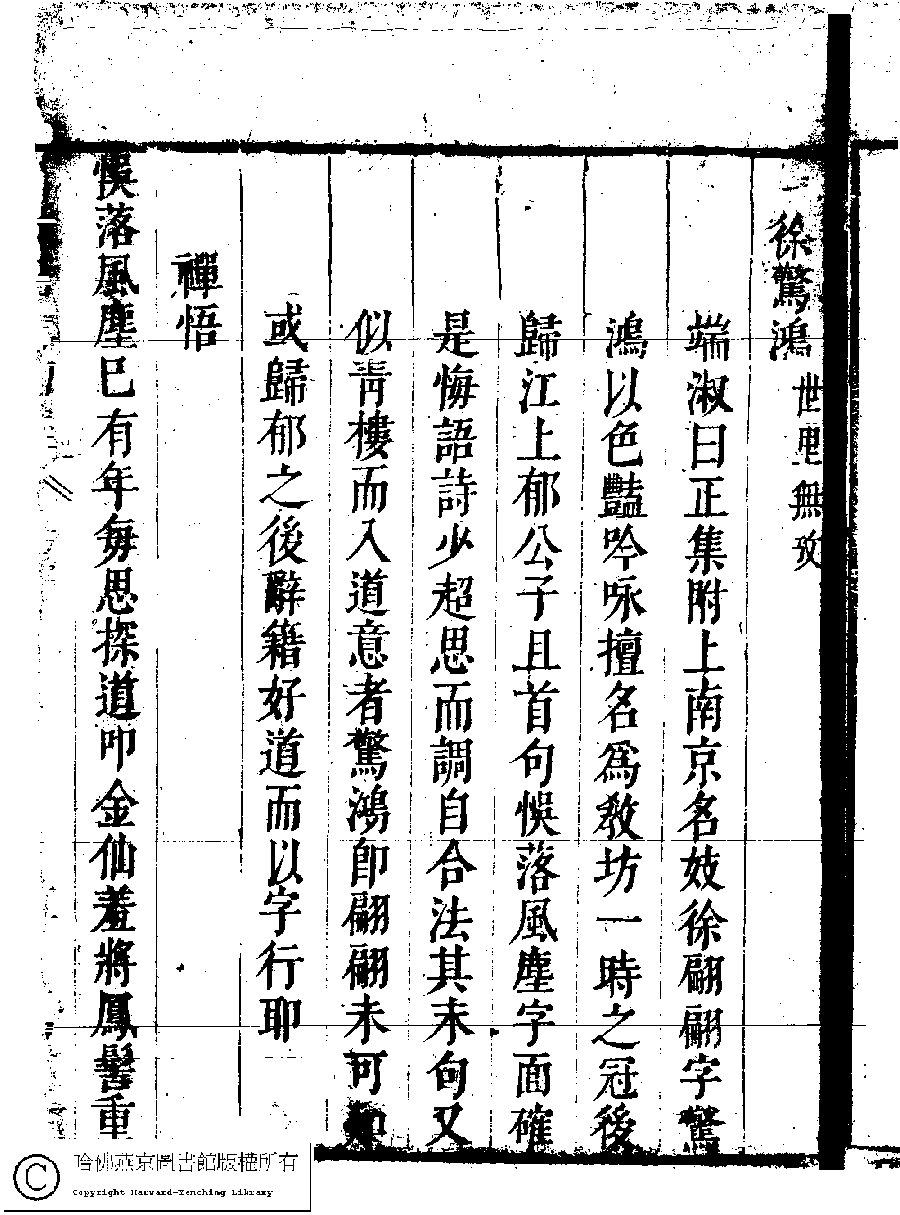 徐驚鴻 世里無攷
端淑曰正集附上南京名妓徐翩翩字驚
鴻以色豔吟咏擅名爲教坊一時之冠後
歸江上郁公子且首句悞落風塵字面確
是悔語詩少超思而調自合法其末句又
似靑樓而入道意者驚鴻卽翩翩未可知
或歸郁之後辭籍好道而以字行耶
禪悟
悞落風塵已有年每思探道叩金仙羞將鳳髻重
哈佛燕京圖書館版權所有
Copyright Harvard-Yenching Library